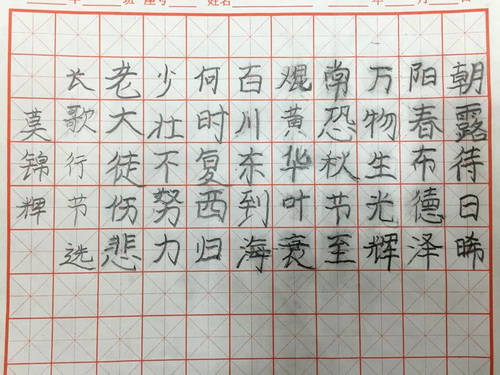 年 班 座号 姓名 年 月 日
朝露待日晞
阳春布德泽
万物生光辉
常恐秋节至
焜黄华叶衰
百川东到海
何时复西归
少壮不努力
老大徒伤悲
长歌行节选
莫锦辉